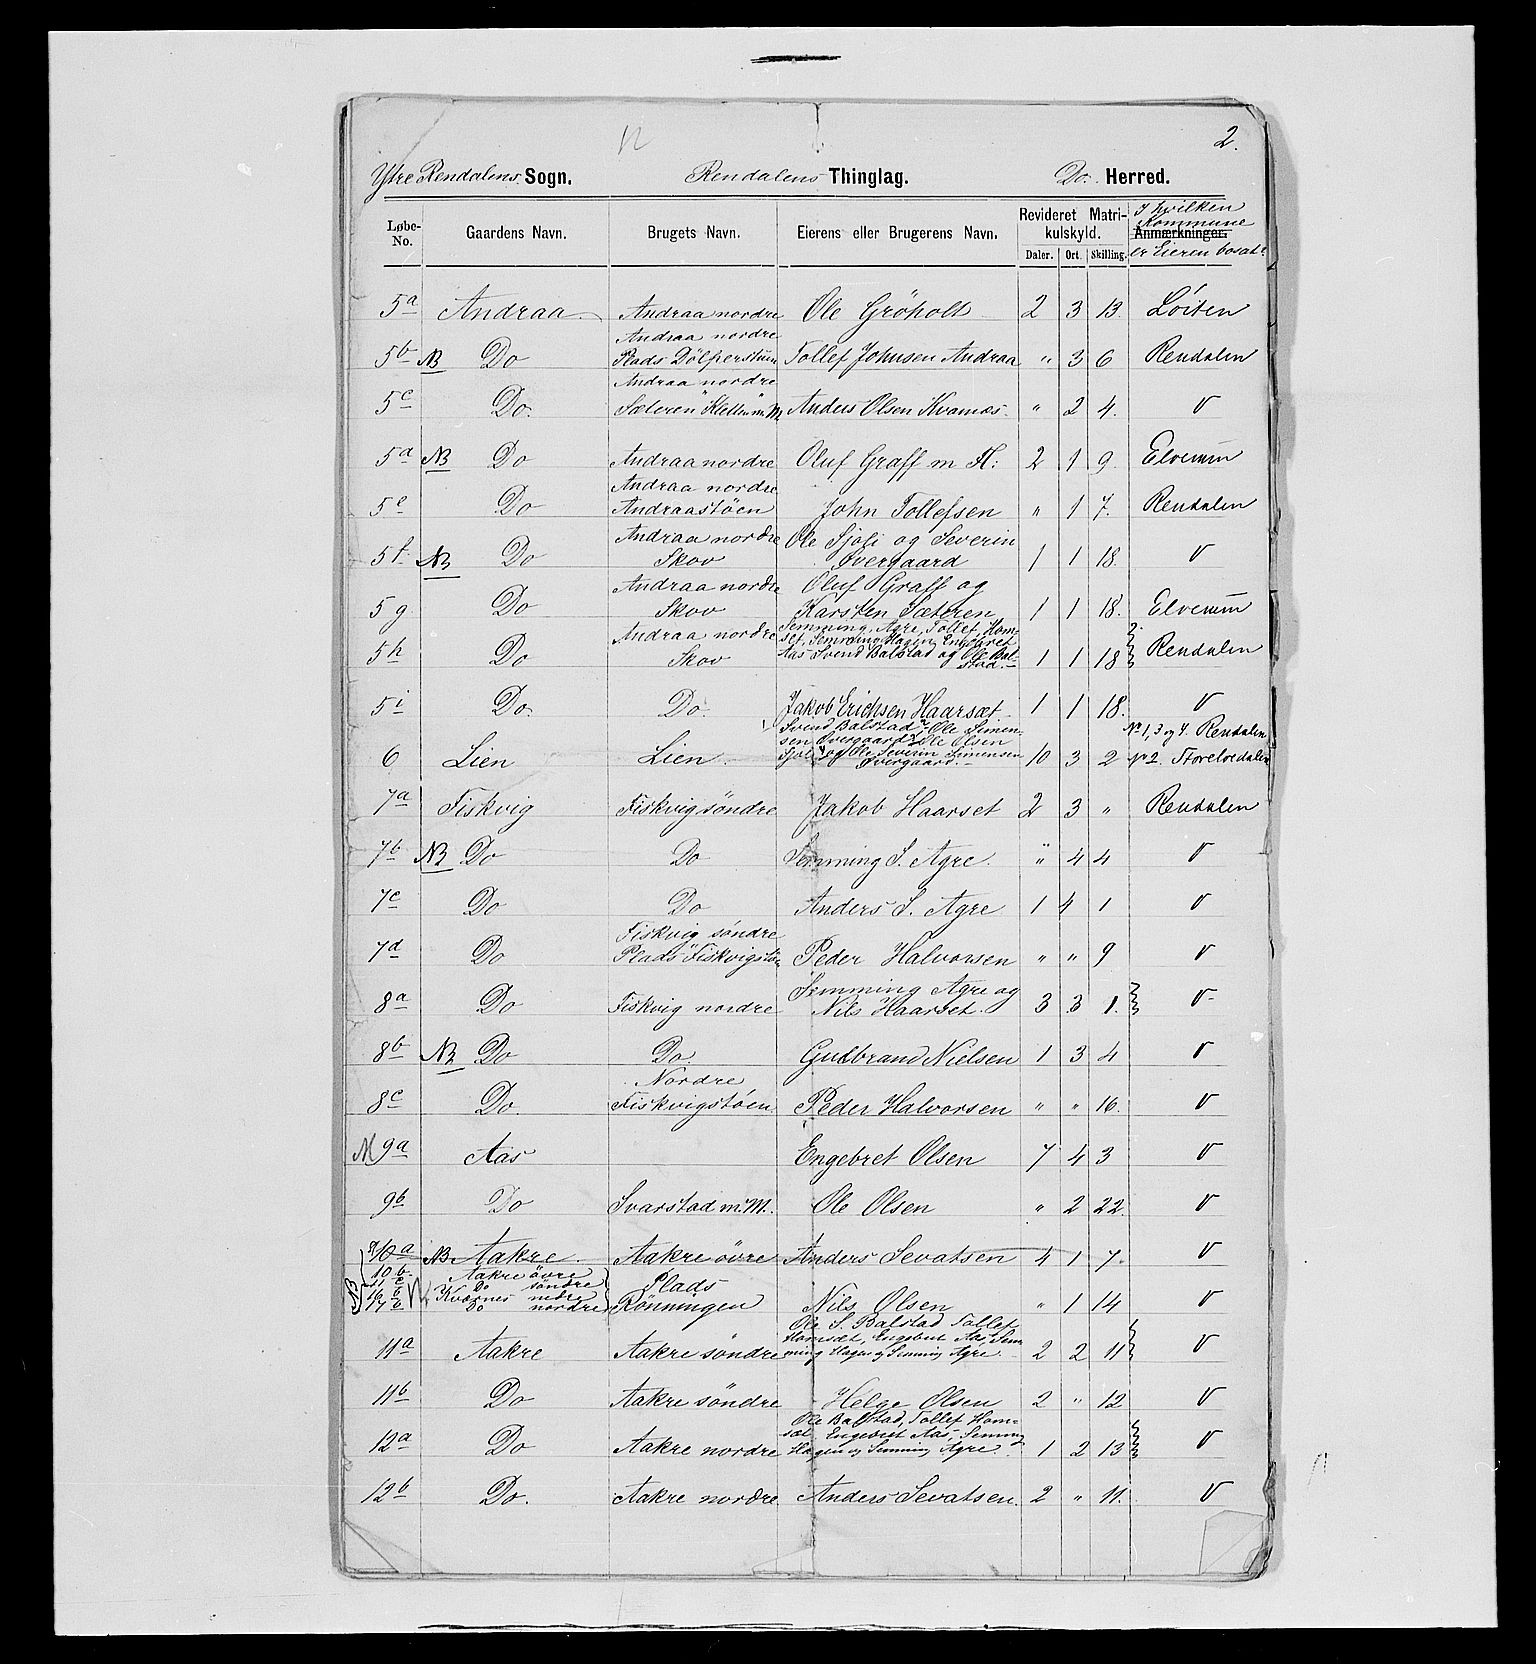 2.
Ytre Rendalens Sogn. Rendalens Thinglag. Do. Herred.
Løbe-No. Gaardens Navn. Brugets Navn. Eierens eller Brugerens Navn. Revideret Matrikulskyld. Daler. Ort. Skilling. Anmærkninger. I hvilken Kommune er Eieren bosat?
5a Andraa Andraa nordre Ole Gröholt 2 3 13. Löiten
Andraa nordre
5b NB Do Plads Tollef Johnsen Andraa " 3 6 Rendalen
Andraa nordre
5c Do. Sæteren m. M. Anders Olsen Kvarnæs " 2 4. V
5d NB Do Andraa nordre Oluf Graff m Fl: 2 1 9. Elverum
Andraa nordre
5e Do Andraastöen John Tollefsen " 1 7. Rendalen
Andraa nordre Ole Sjoli og Severin
5f NB Do Skov Övergaard 1 1 18. V
Andraa nordre Oluf Graff og
5g Do Skov Karsten Sæteren 1 1 18. Elverum
Semming Agre, Tollef Hom-
Andraa nordre set, Semming Hagen Engebret
5h Do Skov Aas Svend Balstad og Ole Bal-stad. 1 1 18 Rendalen
5i Do. Do. Jakob Erichsen Haarsæt 1 1 18. V
Svend Balstad, Ole Simen- No 1, 3 og 4. Rendalen
sen Övergaard Ole Olsen
6 Lien Lien Sjoli og Ole Severin Simensen Övergaard. 10 3 2 No 2. Storelvedalen
7a Fiskvig Fiskvig söndre Jakob Haarset 2 3 " Rendalen
7b NB Do Do Semming S. Agre. " 4 4 V
7c Do Do Anders S. Agre 1 4 1 V
Fiskvig söndre
7d Do Plads Fiskvigstöen Peder Halvorsen " " 9 V
Semming Agre og
8a Do Fiskvig nordre Nils Haarset. 3 3 1. V
8b NB Do Do. Gulbrand Nielsen 1 3 4 V
Nordre
8c Do. Fiskvigstöen Peder Halvorsen " " 16. V
9a Aas Engebret Olsen 7 4 3 V
9b Do Svarstad m. M. Ole Olsen " 2 22. V
10a NB Aakre Aakre övre Anders Sevatsen 4 1 7. V
10b Aakre övre
11c Do söndre Plads
16b Kværnes nedre
17b Do nordre Rönningen Nils Olsen " 1 14 V
Ole S. Balstad Tollef
Homsæt, Engebret Aas, Sem-
11a Aakre Aakre söndre ming Hagen og Semming Agre. 2 2 11 V
11b Do Aakre söndre Helge Olsen 2 " 12 V
Ole Balstad, Tollef Hom-
sæt Engebret Aas, Semming
12a Do Aakre nordre Hagen og Semming Agre. 1 2 13 V
12b Do. Aakre nordre Anders Sevatsen. 2 " 11. V